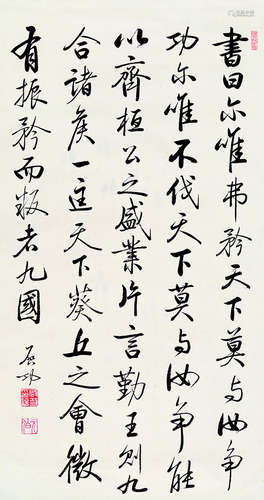 書曰尔唯弗矜天下莫与汝争
功尔唯不伐天下莫与汝争能
以齊桓公之盛業片言勤王则九
合諸侯一匡天下葵丘之會微
有振矜而叛者九國
启功